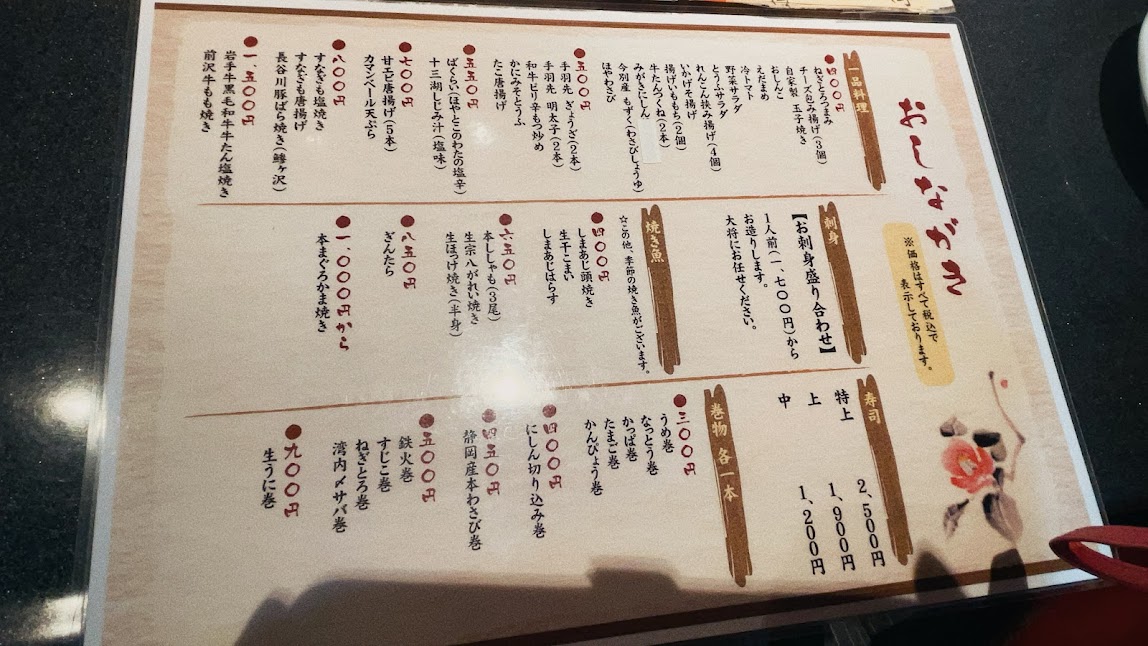 おしながき
※価格はすべて税込で
表示しております。
一品料理
●四〇〇円
ねぎとろつまみ
チーズ包み揚げ(3個)
自家製 玉子焼き
おしんこ
えだまめ
冷トマト
野菜サラダ
とうふサラダ
れんこん挟み揚げ(4個)
いかげそ揚げ
揚げいももち(2個)
牛たんつくね(2本)
みがきにしん
今別産 もずく(わさびしょうゆ)
ほやわさび
●五〇〇円
手羽先 ぎょうざ(2本)
手羽先 明太子(2本)
和牛ピリ辛もつ炒め
かにみそとうふ
たこ唐揚げ
●五五〇円
ばくらい(ほやとこのわたの塩辛)
十三湖しじみ汁(塩味)
●七〇〇円
甘エビ唐揚げ(5本)
カマンベール天ぷら
●八〇〇円
すなぎも塩焼き
すなぎも唐揚げ
長谷川豚ばら焼き(鰺ヶ沢)
●一、五〇〇円
岩手牛黒毛和牛牛たん塩焼き
前沢牛もも焼き
刺身
【お刺身盛り合わせ】
1人前(一、七〇〇円)から
お造りします。
大将にお任せください。
焼き魚
☆この他、季節の焼き魚がございます。
●四〇〇円
しまあじ頭焼き
生干こまい
しまあじはらす
●六五〇円
本ししゃも(3尾)
生宗八がれい焼き
生ほっけ焼き(半身)
●八五〇円
ぎんたら
●一、〇〇〇円から
本まぐろかま焼き
寿司
特上 2,500円
上 1,900円
中 1,200円
巻物 各一本
●三〇〇円
うめ巻
なっとう巻
かっぱ巻
たまご巻
かんぴょう巻
●四〇〇円
にしん切り込み巻
●四五〇円
静岡産本わさび巻
●五〇〇円
鉄火巻
すじこ巻
ねぎとろ巻
湾内〆サバ巻
●九〇〇円
生うに巻